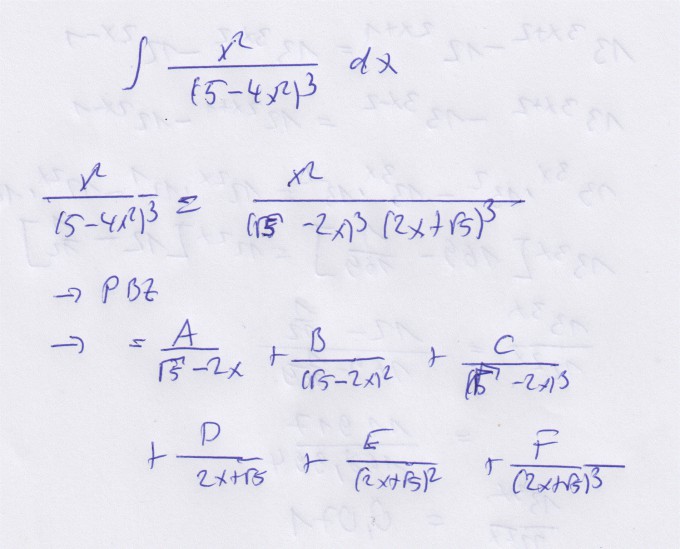 ∫ x² / (5-4x²)³ dx
x² / (5-4x²)³ = x² / (√5 -2x)³ (2x+√5)³
→ PBZ
→ = A / √5-2x + B / (√5-2x)² + C / (√5 -2x)³
+ D / 2x+√5 + E / (2x+√5)² + F / (2x+√5)³